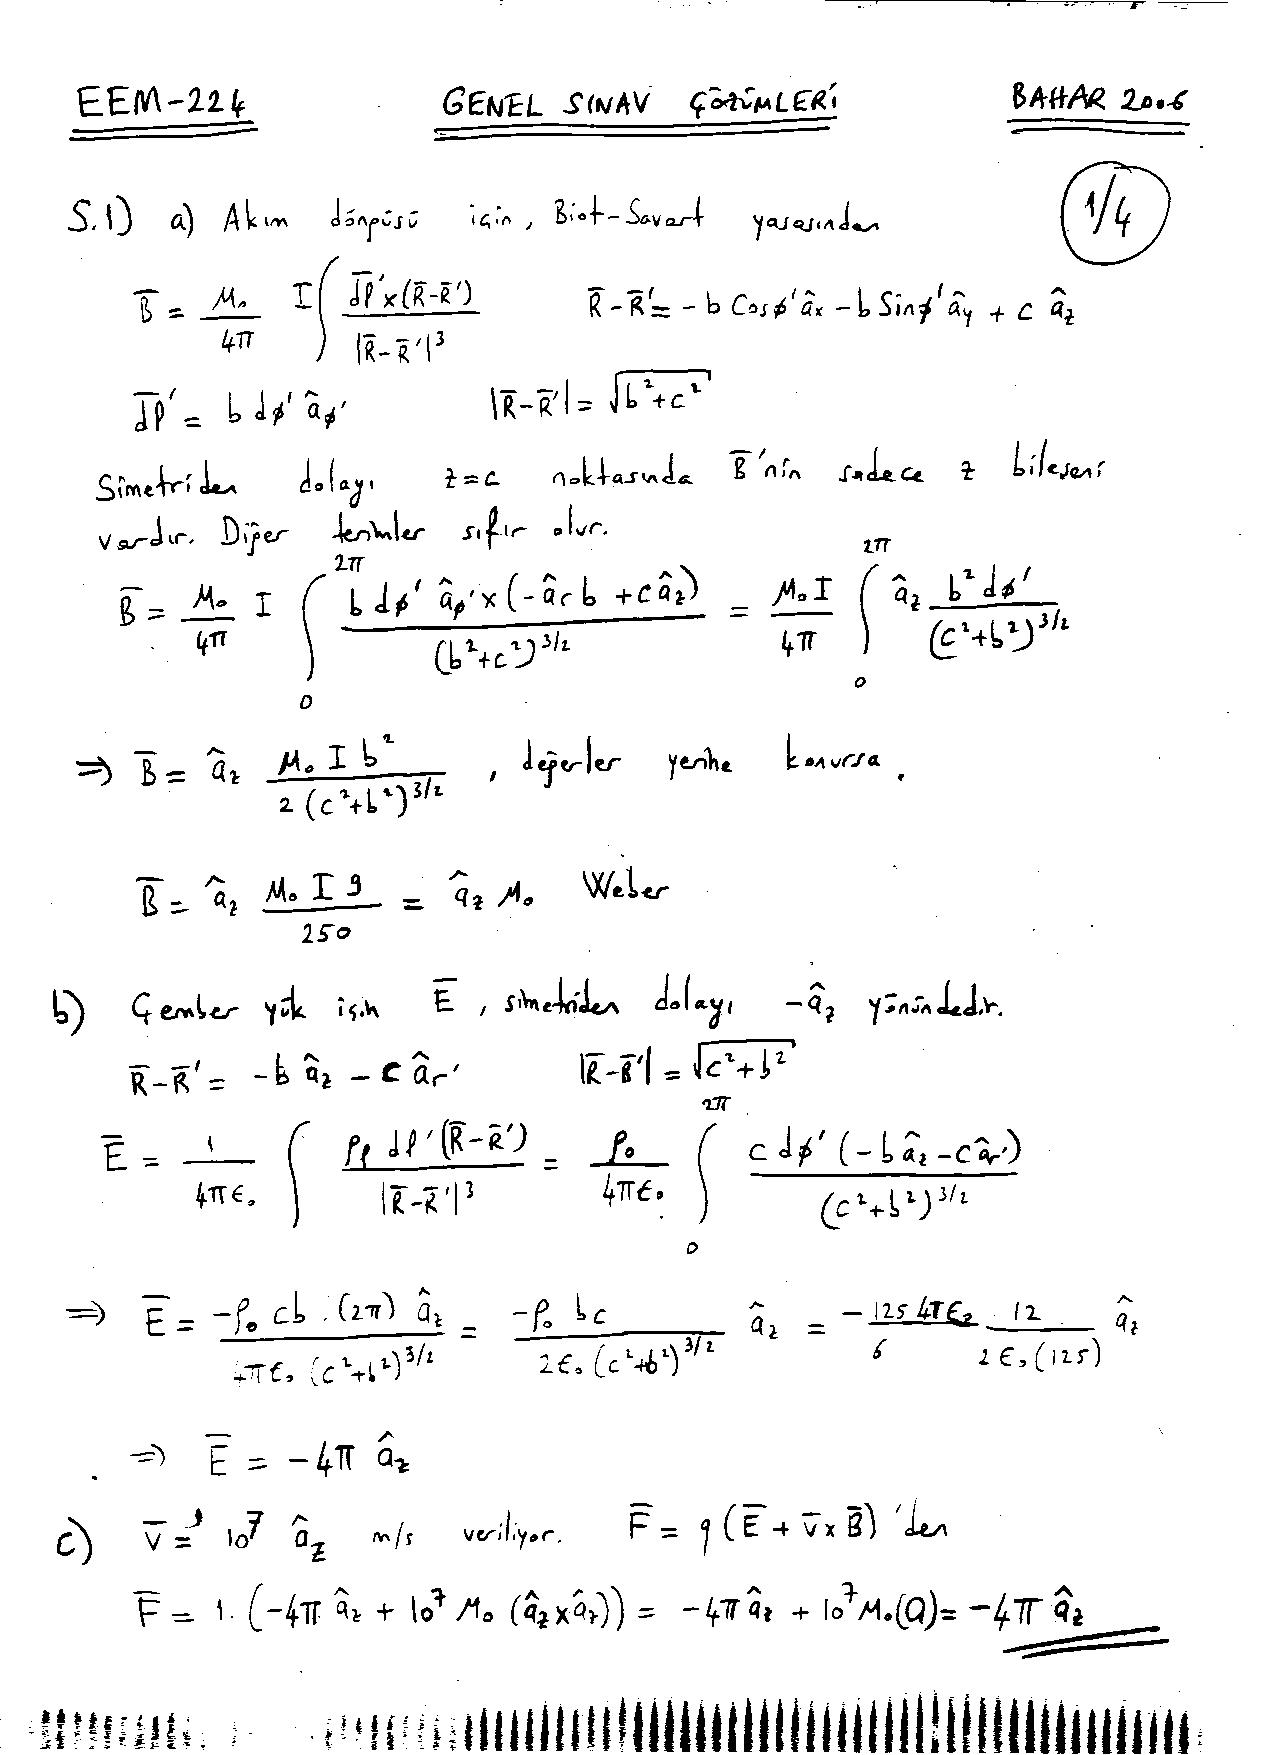 EEM-224 GENEL SINAV ÇÖZÜMLERİ BAHAR 2006
1/4
S.1) a) Akım döngüsü için, Biot-Savart yasasından
B̄ = μ₀/4π I ∫ d̄l′×(R̄-R̄′) / |R̄-R̄′|³    R̄-R̄′ = -b Cosϕ′âx - b Sinϕ′ây + c âz
d̄l′ = b dϕ′ âϕ′    |R̄-R̄′| = √(b²+c²)
Simetriden dolayı z=c noktasında B̄'nin sadece z bileşeni
vardır. Diğer terimler sıfır olur.
B̄ = μ₀/4π I ∫₀^2π b dϕ′ âϕ′×(-âr b + c âz) / (b²+c²)^3/2 = μ₀I/4π ∫₀^2π âz b² dϕ′ / (c²+b²)^3/2
⇒ B̄ = âz μ₀ I b² / 2(c²+b²)^3/2 , değerler yerine konursa.
B̄ = âz μ₀ I 9 / 250 = âz μ₀ Weber
b) Çember yük için Ē, simetriden dolayı -âz yönündedir.
R̄-R̄′ = -b âz - c âr′    |R̄-R̄′| = √(c²+b²)
Ē = 1/4πε₀ ∫ ρℓ dl′(R̄-R̄′) / |R̄-R̄′|³ = ρ₀/4πε₀ ∫₀^2π c dϕ′ (-b âz - c âr′) / (c²+b²)^3/2
⇒ Ē = -ρ₀ cb . (2π) âz / 4πε₀ (c²+b²)^3/2 = -ρ₀ bc / 2ε₀ (c²+b²)^3/2 âz = -125 4πε₀/6 12/2ε₀(125) âz
⇒ Ē = -4π âz
c) v̄ = 10⁷ âz m/s veriliyor. F̄ = q(Ē + v̄×B̄)'den
F̄ = 1. (-4π âz + 10⁷ μ₀ (âz×âz)) = -4π âz + 10⁷ μ₀(0) = -4π âz